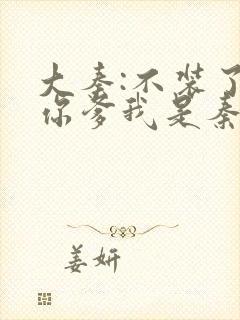 大秦:不装了
你爹我是秦
姜妍